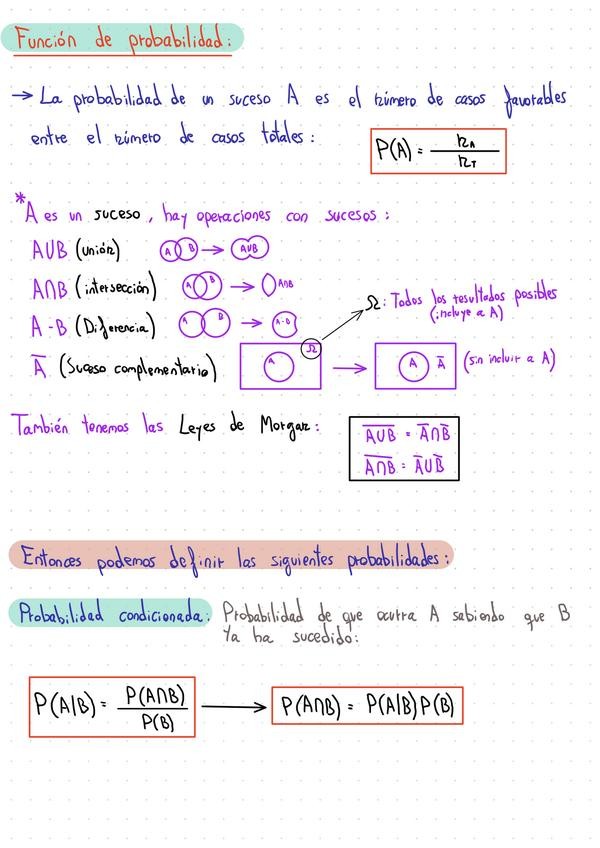 Función de probabilidad:
→ La probabilidad de un suceso A es el número de casos favorables
entre el número de casos totales: P(A) = n_A / n_T
* A es un suceso, hay operaciones con sucesos:
A∪B (unión) A B → A∪B
A∩B (intersección) A B → A∩B
Ω: Todos los resultados posibles
(incluye a A)
A-B (Diferencia) A B → A-B
A̅ (Suceso complementario) A Ω → A A̅ (sin incluir a A)
También tenemos las Leyes de Morgan:
A̅∪̅B̅ = A̅∩B̅
A̅∩̅B̅ = A̅∪B̅
Entonces podemos definir las siguientes probabilidades:
Probabilidad condicionada: Probabilidad de que ocurra A sabiendo que B
Ya ha sucedido:
P(A|B) = P(A∩B) / P(B) → P(A∩B) = P(A|B)P(B)